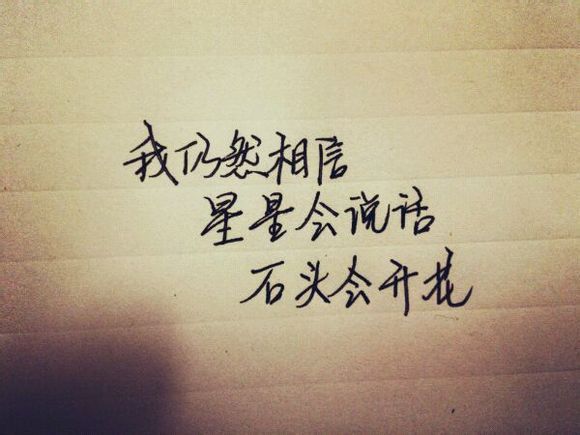 我仍然相信
星星会说话
石头会开花